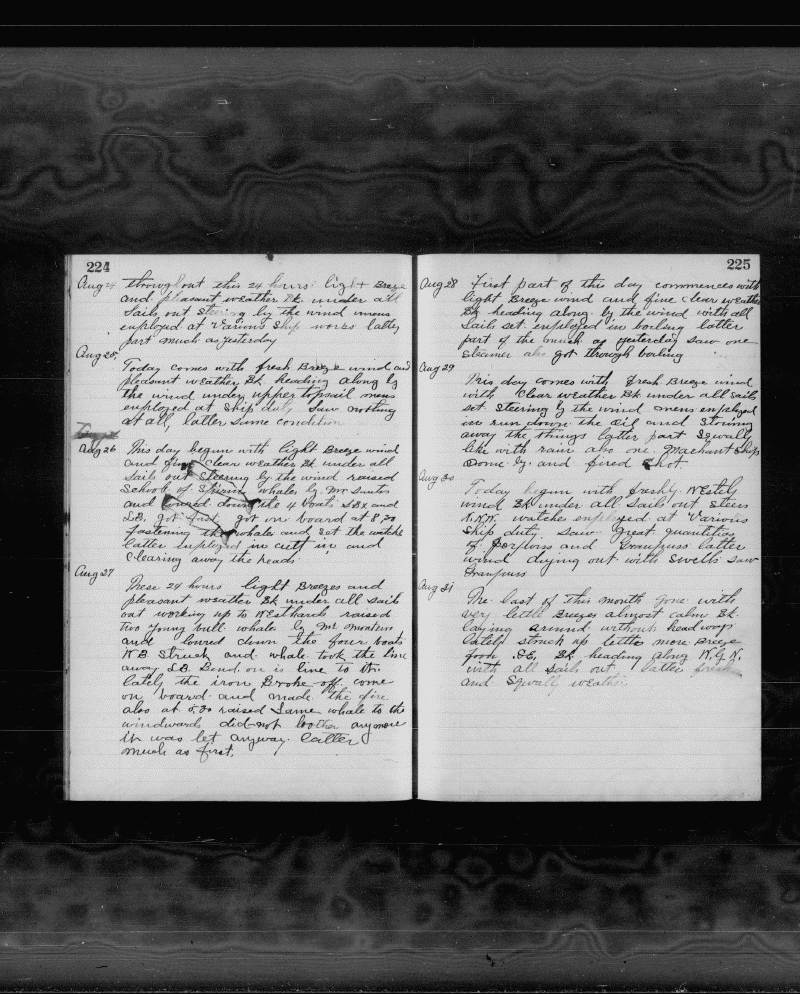 224
Aug 24 throughout this 24 hours light Breeze
and pleasant weather Bk under all
Sails out Stering by the wind mens
employed at Various Ship works latter
part much as yesterday
Aug 25,
Today comes with fresh Breeze wind and
pleasant weather Bk heading along by
the wind under upper topsail mens
employed at Ship duty Saw nothing
at all, latter Same condition
Aug 26 This day begun with light Breeze wind
and fine clear weather Bk under all
Sails out Steering by the wind raised
School of whales by Mr
and lowered down the 4 boats SBx and
LB. got fast got on board at 8,30
fastening the whales and Set the watch
latter employed in cutt in and
Clearing away the heads
Aug 27
These 24 hours light Breezes and
pleasant weather Bk under all Sails
out working up to Westhards raised
two young bull whale by Mr
and lowred down the four boats
WB Struck and whale took the line
away LB. Bend on is line to it
lately the iron Broke off, come
on board and made the fire
also at 5.30 raised Same whale to the
windwards did not bother anymore
it was let anyway. latter
much as first.
225
Aug 28 First part of this day commences with
light Breeze wind and fine Clear weather
Bk heading along by the wind with all
Sails set employed in boiling latter
part of the much as yesterday saw one
Steamer also got through boiling
Aug 29
This day comes with fresh Breeze wind
with Clear weather Bk under all Sails
set Steering by the wind mens employed
in run down the Oil and Stowing
away the things latter part Squally
like with rain also one Machant Ship
Come by and fired Shot
Aug 30
Today begun with freshly Westely
wind Bk under all Sails out Steers
N.N.W. watches employed at Various
Ship duty. Saw great quantities
of Porpoiss and Grampuss latter
wind dying out with Swells Saw
Grampuss
Aug 31
The last of this month gone with
very little Breezes almost calm Bk
laying around without headway
lately struck up little more Breeze
from Bk heading along
with all Sails out latter fresh
and Squally weather